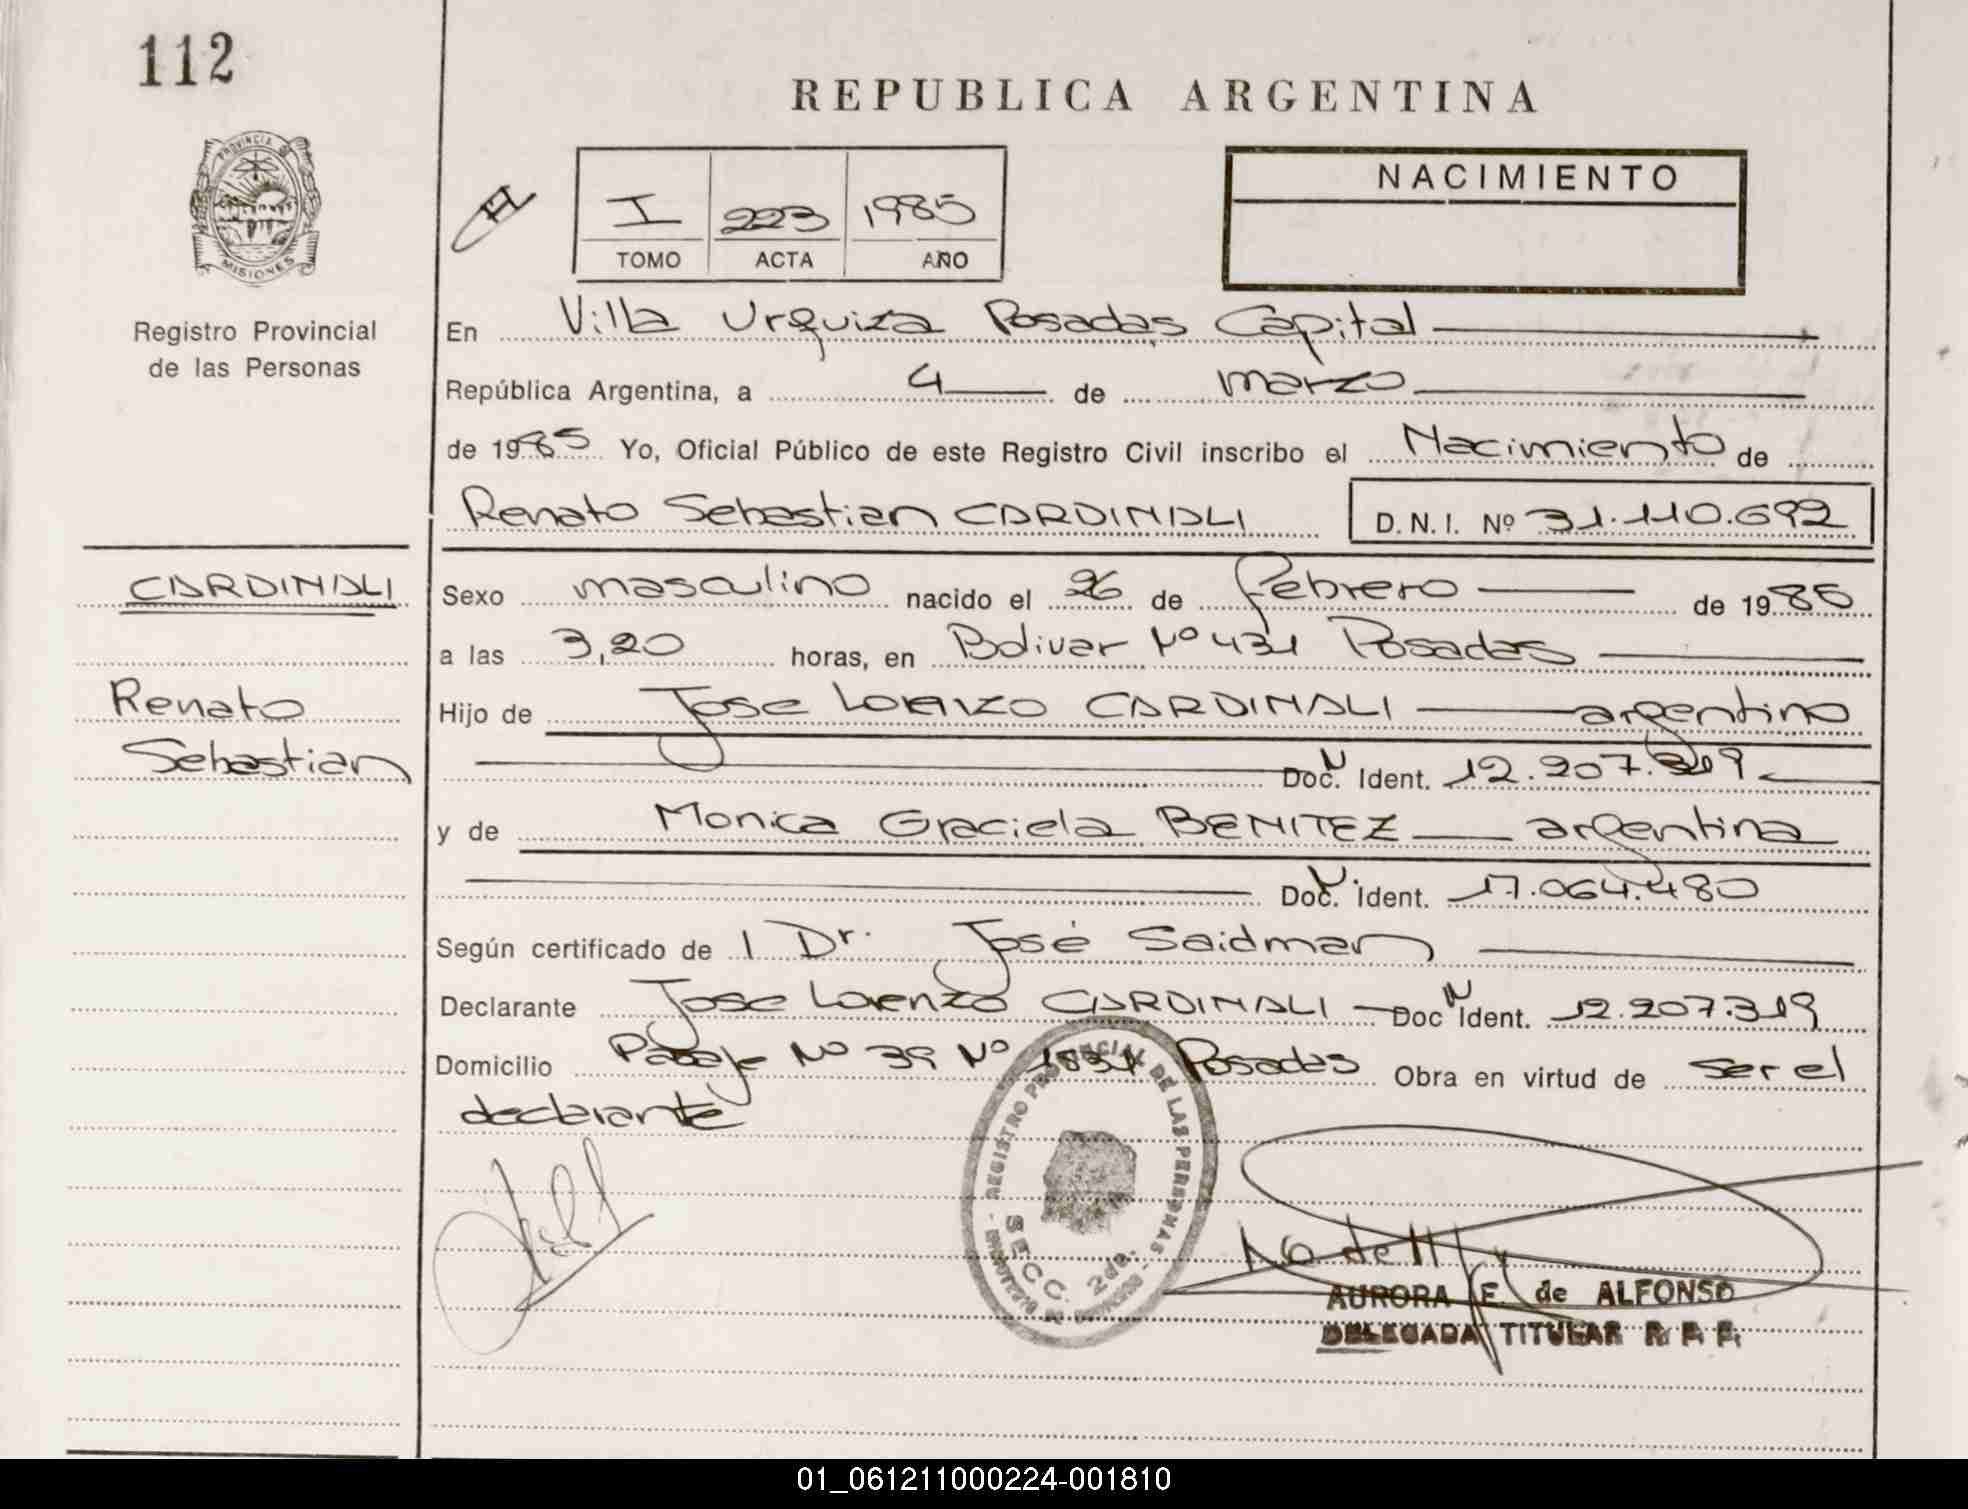 112
REPUBLICA ARGENTINA
PROVINCIA DE
MISIONES
Registro Provincial
de las Personas
NACIMIENTO
I 223 1985
TOMO ACTA AÑO
En Villa Urquiza Posadas Capital
República Argentina, a 4 de marzo
de 1985 Yo, Oficial Público de este Registro Civil inscribo el Nacimiento de
Renato Sebastian CARDINALI D.N.I. Nº 31.110.692
CARDINALI
Renato
Sebastian
Sexo masculino nacido el 26 de febrero de 1985
a las 3,20 horas, en Bolivar Nº 431 Posadas
Hijo de Jose Lorenzo CARDINALI argentino
Doc. Ident. 12.207.319
y de Monica Graciela BENITEZ argentina
Doc. Ident. 17.064.480
Según certificado de 1 Dr. José Saidman
Declarante Jose Lorenzo CARDINALI Doc Ident. 12.207.319
Domicilio Pasaje Nº 39 Nº 1834 Posadas Obra en virtud de ser el
declarante
REGISTRO PROVINCIAL DE LAS PERSONAS
SECC. 2da.
AURORA F. de ALFONSO
DELEGADA TITULAR R. P. P.
01_061211000224-001810